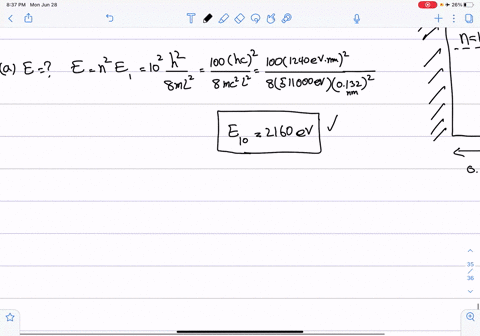 8:37 PM Mon Jun 28
26%
(a) E=? E = n² E₁ = 10² h²/8mL² = 100(hc)²/8mc²L² = 100(1240 eV.nm)²/8(511000 eV)(0.132 nm)²
n=1
E₁₀ = 2160 eV ✓
0.
35
/
36